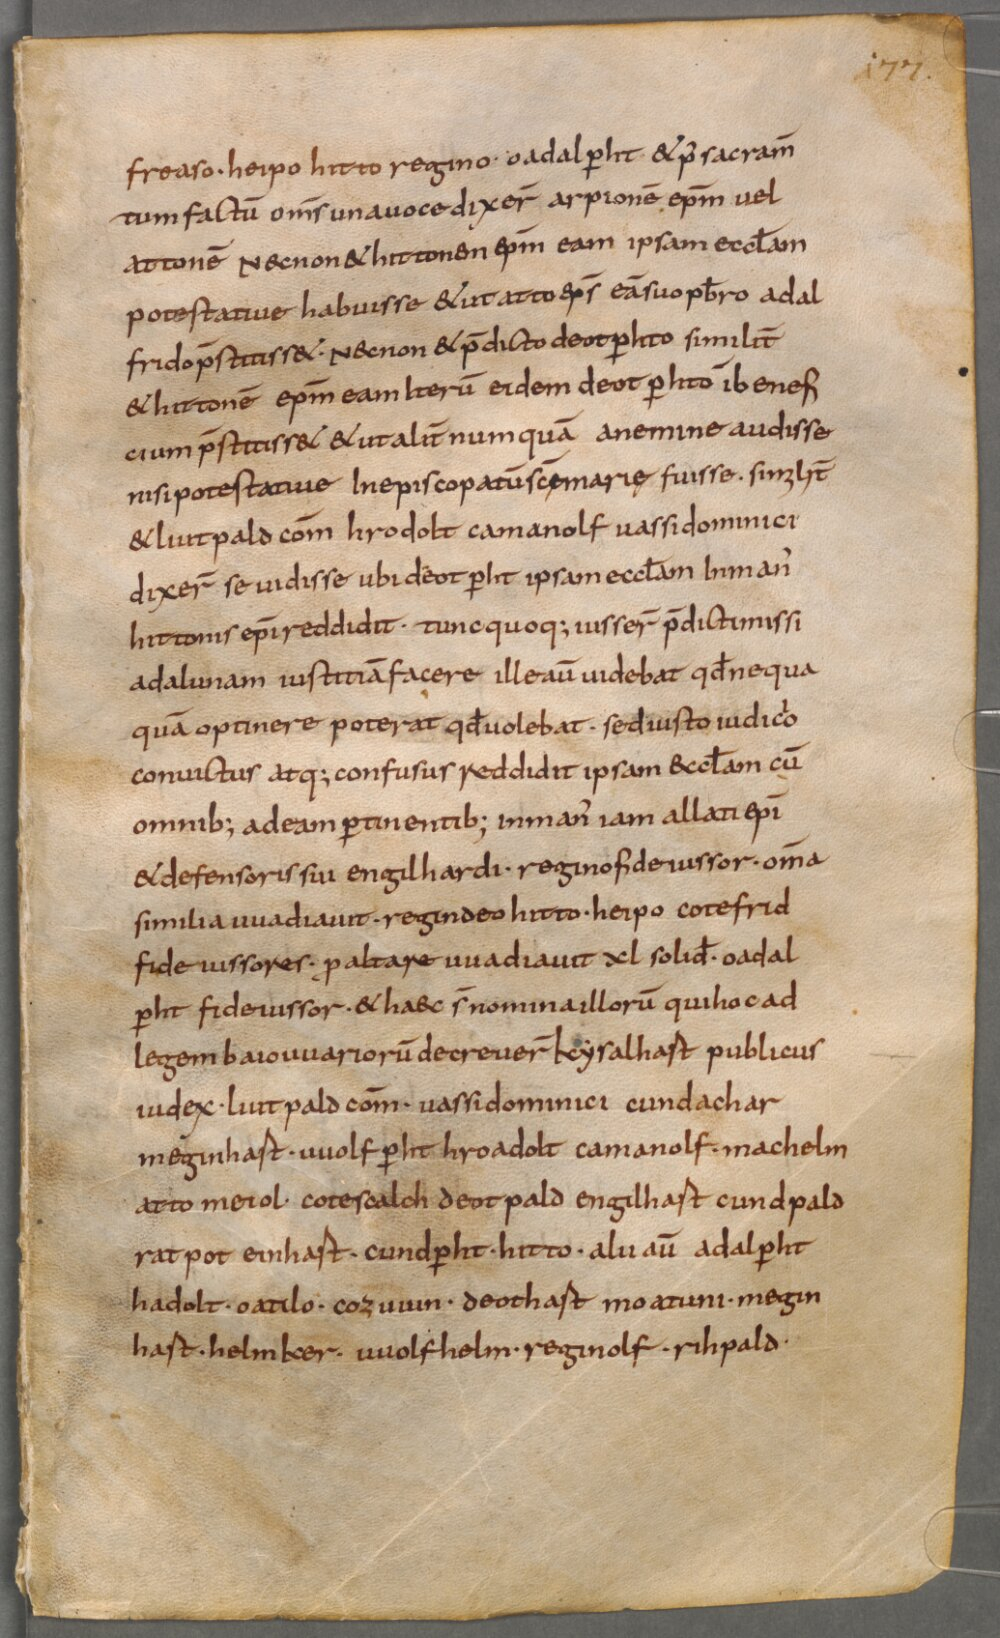 177.
freaso · heipo hitto regino · oadalp̄ht · & p̄ sacram̄
tum factū om̄s una uoce dixer̄ arpionē ep̄m uel
attonē Necnon & hittonen ep̄m eam ipsam eccl̄am
potestatiue habuisse & ut atto ep̄s eā suo pb̄ro adal
frido p̄stitiss& · Necnon & p̄dicto deotp̄hto similit̄
& hittonē ep̄m eam Iterū eidem deotp̄hto īb enefi
cium p̄stitiss& & ut alit̄ numquā a nemine audisse
nisi potestatiue In episcopatū scē marię fuisse · sim̄lit̄
& liutpald com̄ hrodolt camanolf uassi dominici
dixer̄ se uidisse ubi deotp̄ht ipsam eccl̄am In man̄
hittonis ep̄i reddidit · tunc quoq; iusser̄ p̄dicti missi
adalunam iustitiā facere ille aū uidebat qd̄ nequa
quā optinere poterat qd̄ uolebat · sed iusto iudicio
conuictus atq; confusus reddidit ipsam eccl̄am cū
omnib; ad eam p̄tinentib; in man̄ iam allati ep̄i
& defensoris sui engilhardi · regino fideiussor · om̄a
similia uuadiauit · regindeo hitto · heipo cotefrid
fideiussores · p̄ altare uuadiauit xl solid̄ · oadal
p̄ht fideiussor · & haec s̄ nomina illorū qui hoc ad
legem baiouuariorū decreuer̄ kysalhast publicus
iudex · liutpald com̄ · uassi dominici cundachar
meginhast · uuolfp̄ht hroadolt camanolf · machelm
atto meiol · cotescalch deotpald engilhast cundpald
ratpot einhast · cundp̄ht · hitto · alii aū adalp̄ht
hadolt · oatilo · cozuuin · deothast moatuni · megin
hast · helmker · uuolfhelm · reginolf · rihpald ·